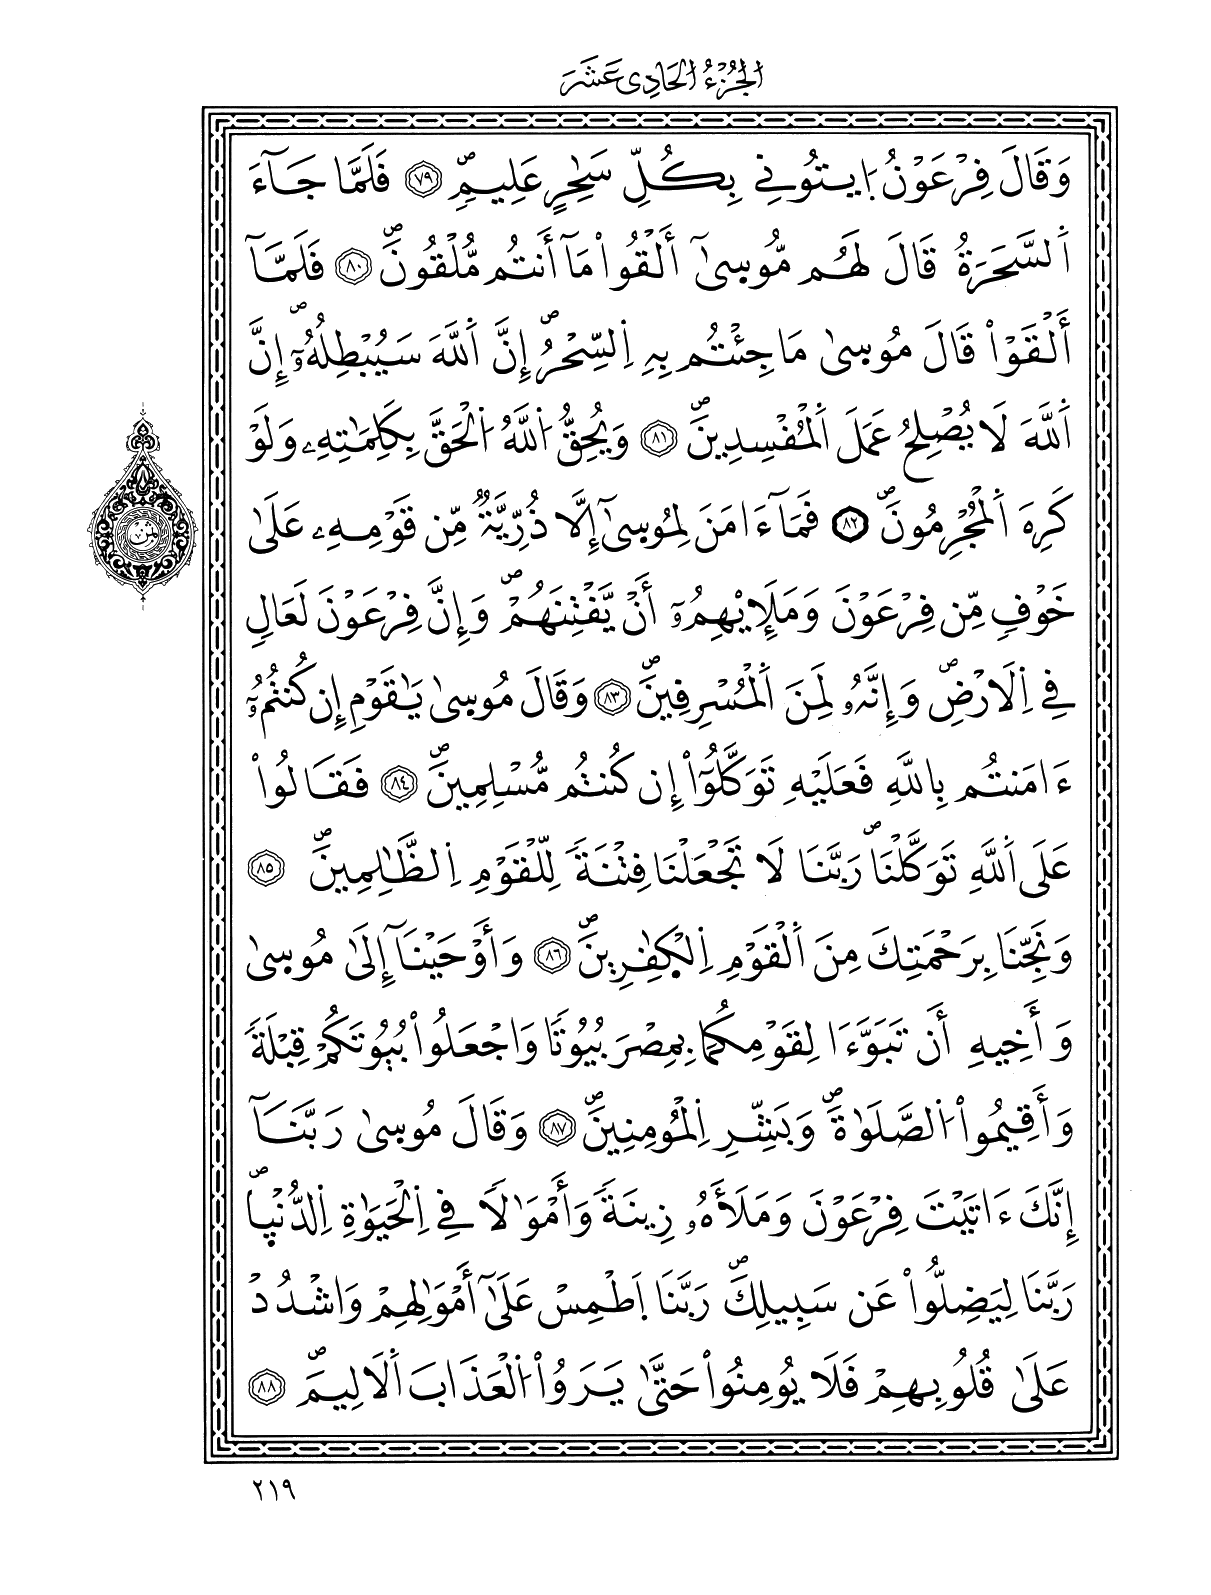 الجُزْءُ الحَادِي عَشَرَ
وَقَالَ فِرْعَوْنُ اُ۪يتُونِے بِكُلِّ سَٰحِرٍ عَلِيمٖۖ ٧٩ فَلَمَّا جَآءَ
اَ۬لسَّحَرَةُ قَالَ لَهُم مُّوسَىٰٓ أَلْقُواْ مَآ أَنتُم مُّلْقُونَۖ ٨٠ فَلَمَّآ
أَلْقَوْاْ قَالَ مُوسَىٰ مَا جِئْتُم بِهِ اِ۬لسِّحْرُۖ إِنَّ اَ۬للَّهَ سَيُبْطِلُهُۥٓۖ إِنَّ
اَ۬للَّهَ لَا يُصْلِحُ عَمَلَ اَ۬لْمُفْسِدِينَۖ ٨١ وَيُحِقُّ اُ۬للَّهُ اُ۬لْحَقَّ بِكَلِمَٰتِهِۦ وَلَوْ
كَرِهَ اَ۬لْمُجْرِمُونَۖ ٨٢ فَمَآ ءَامَنَ لِمُوسَىٰٓ إِلَّا ذُرِّيَّةٞ مِّن قَوْمِهِۦ عَلَىٰ
خَوْفٖ مِّن فِرْعَوْنَ وَمَلَإِيْهِمُۥٓ أَنْ يَّفْتِنَهُمْۖ وَإِنَّ فِرْعَوْنَ لَعَالٖ
فِے اِ۬لَارْضِۖ وَإِنَّهُۥ لَمِنَ اَ۬لْمُسْرِفِينَۖ ٨٣ وَقَالَ مُوسَىٰ يَٰقَوْمِ إِن كُنتُمُۥٓ
ءَامَنتُم بِاللَّهِ فَعَلَيْهِ تَوَكَّلُوٓاْ إِن كُنتُم مُّسْلِمِينَۖ ٨٤ فَقَالُواْ
عَلَى اَ۬للَّهِ تَوَكَّلْنَاۖ رَبَّنَا لَا تَجْعَلْنَا فِتْنَةٗ لِّلْقَوْمِ اِ۬لظَّٰلِمِينَۖ ٨٥
وَنَجِّنَا بِرَحْمَتِكَ مِنَ اَ۬لْقَوْمِ اِ۬لْكٰ۪فِرِينَۖ ٨٦ وَأَوْحَيْنَآ إِلَىٰ مُوسَىٰ
وَأَخِيهِ أَن تَبَوَّءَا لِقَوْمِكُمَا بِمِصْرَ بُيُوتٗا وَاجْعَلُواْ بُيُوتَكُمْ قِبْلَةٗ
وَأَقِيمُواْ اُ۬لصَّلَوٰةَۖ وَبَشِّرِ اِ۬لْمُومِنِينَۖ ٨٧ وَقَالَ مُوسَىٰ رَبَّنَآ
إِنَّكَ ءَاتَيْتَ فِرْعَوْنَ وَمَلَأَهُۥ زِينَةٗ وَأَمْوَٰلٗا فِے اِ۬لْحَيَوٰةِ اِ۬لدُّنْي۪اۖ
رَبَّنَا لِيَضِلُّواْ عَن سَبِيلِكَۖ رَبَّنَا اَ۪طْمِسْ عَلَىٰٓ أَمْوَٰلِهِمْ وَاشْدُدْ
عَلَىٰ قُلُوبِهِمْ فَلَا يُومِنُواْ حَتَّىٰ يَرَوُاْ اُ۬لْعَذَابَ اَ۬لَالِيمَۖ ٨٨
ثمن
٢١٩